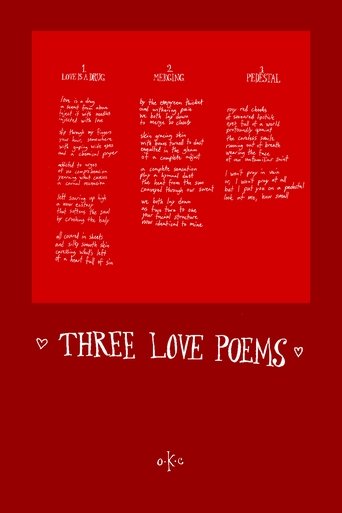 1
LOVE IS A DRUG
love is a drug
a secret from above
inject it with needles
injected with love
slip through my fingers
your hair, somewhere
with gaping wide eyes
and a chemical prayer
addicted to urges
of no compression
yearning what causes
a carnal recursion
left soaring up high
a new ecstasy
that softens the soul
by crushing the body
all covered in sheets
and silky smooth skin
caressing what's left
of a heart full of sin
2
MERGING
by the evergreen thicket
and withering pain
we both lay down
to merge
skin grazing skin
with bones turned to dust
engulfed in the
of a complete
a complete sensation
plus a hymnal dust
the heat from the sun
conveyed through our sweat
we both lay down
as two turn to one
your facial structure
now identical to mine
3
PEDESTAL
your red cheeks
of smeared lipstick
eyes full of a world
profoundly against
the careless smile
running out of breath
wearing the face
of our unfamiliar saint
I won't pray in vain
or, I won't pray at all
but I put you on a pedestal
look at me, how small
♡ THREE LOVE POEMS ♡
o·K·c